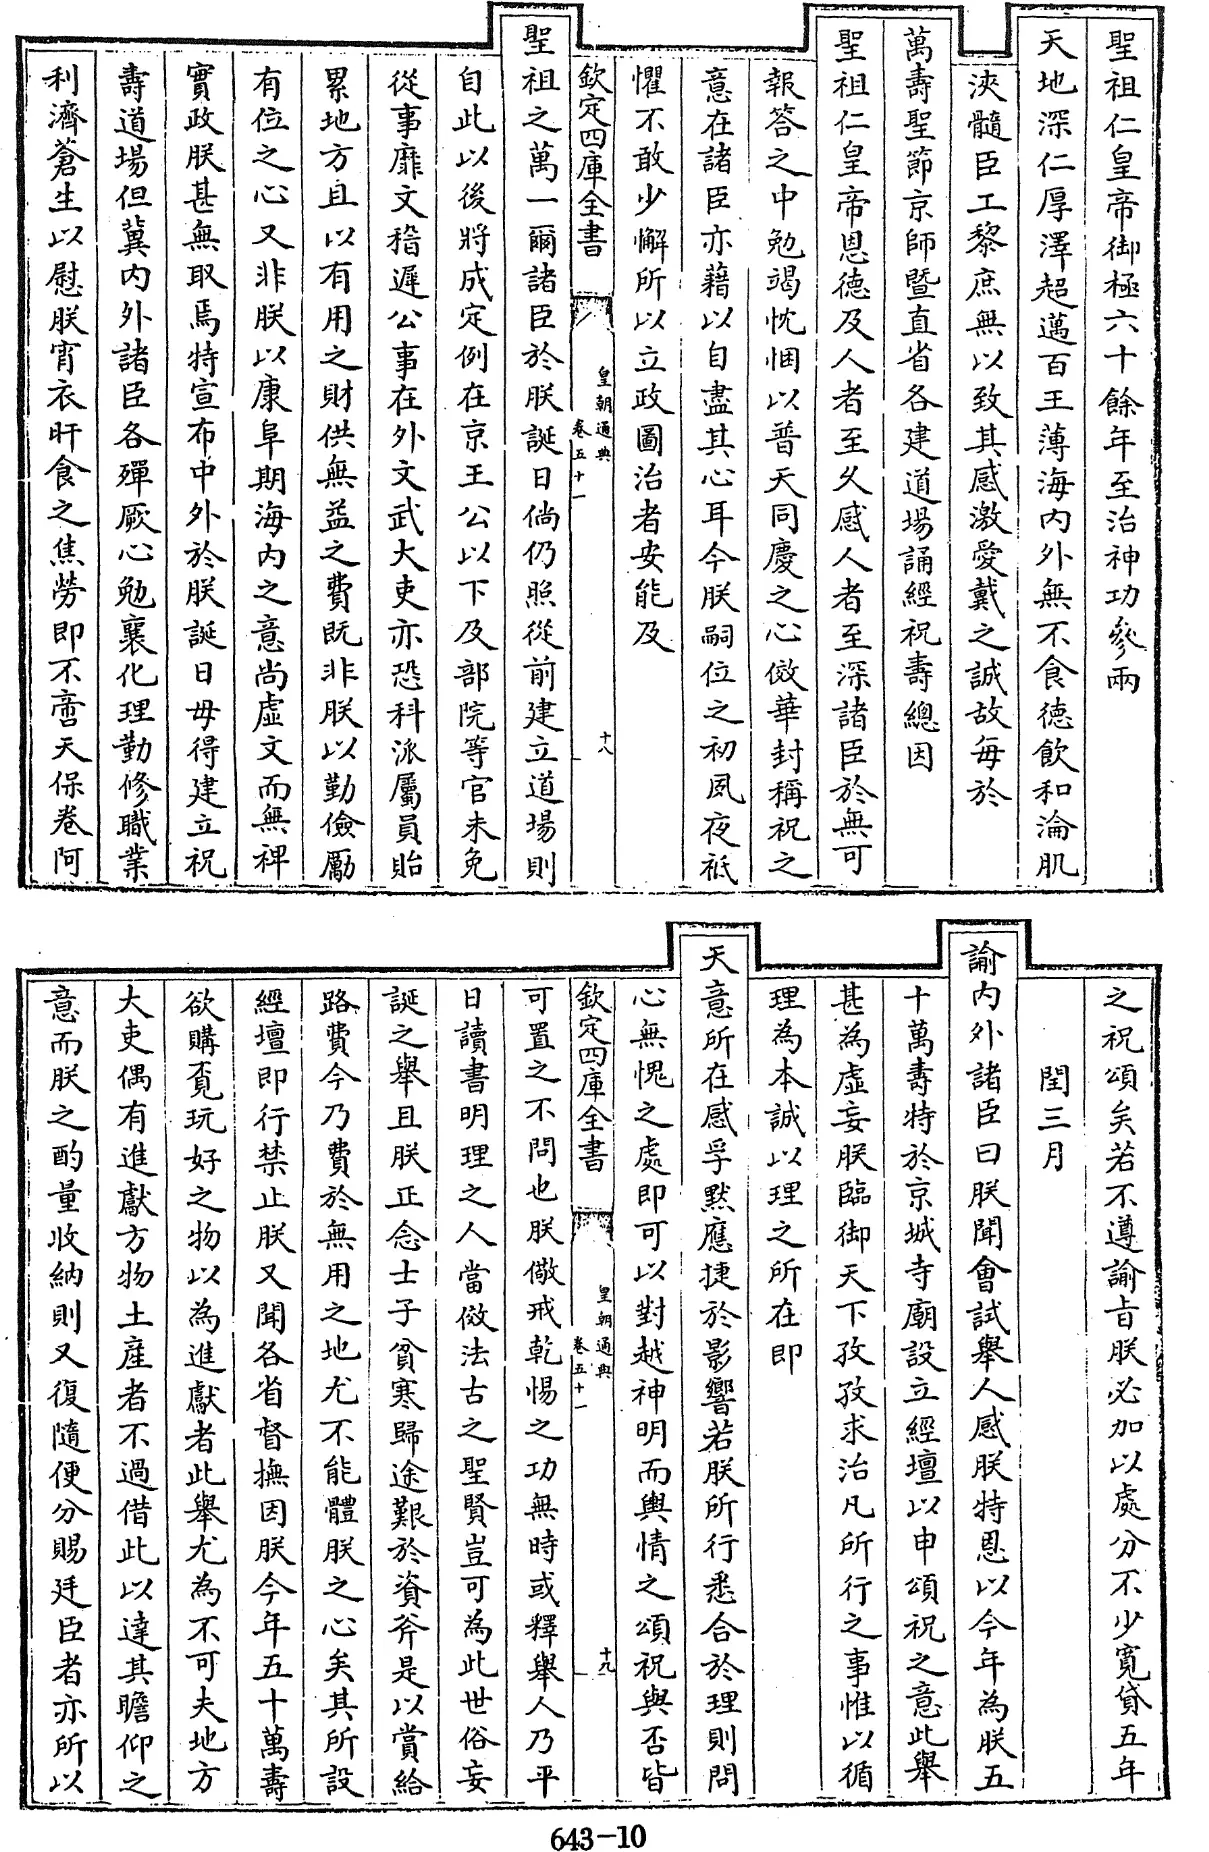 聖祖仁皇帝御極六十餘年至治神功參兩
天地深仁厚澤超邁百王薄海內外無不食德飲和淪肌
浹髓臣工黎庶無以致其感激愛戴之誠故每於
萬壽聖節京師暨直省各建道場誦經祝壽總因
聖祖仁皇帝恩德及人者至久感人者至深諸臣於無可
報答之中勉竭忱悃以普天同慶之心倣華封稱祝之
意在諸臣亦藉以自盡其心耳今朕嗣位之初夙夜祇
懼不敢少懈所以立政圖治者安能及
欽定四庫全書
皇朝通典
卷五十一
十八
聖祖之萬一爾諸臣於朕誕日倘仍照從前建立道場則
自此以後將成定例在京王公以下及部院等官未免
從事靡文稽遲公事在外文武大吏亦恐科派屬員貽
累地方且以有用之財供無益之費既非朕以勤儉勵
有位之心又非朕以康阜期海內之意尚虛文而無裨
實政朕甚無取焉特宣布中外於朕誕日毋得建立祝
壽道場但冀內外諸臣各殫厥心勉襄化理勤修職業
利濟蒼生以慰朕宵衣旰食之焦勞即不啻天保卷阿
之祝頌矣若不遵諭旨朕必加以處分不少寬貸五年
閏三月
諭內外諸臣曰朕聞會試舉人感朕特恩以今年為朕五
十萬壽特於京城寺廟設立經壇以申頌祝之意此舉
甚為虛妄朕臨御天下孜孜求治凡所行之事惟以循
理為本誠以理之所在即
天意所在感孚默應捷於影響若朕所行悉合於理則問
心無愧之處即可以對越神明而輿情之頌祝與否皆
欽定四庫全書
皇朝通典
卷五十一
十九
可置之不問也朕儆戒乾惕之功無時或釋舉人乃平
日讀書明理之人當倣法古之聖賢豈可為此世俗妄
誕之舉且朕正念士子貧寒歸途艱於資斧是以賞給
路費今乃費於無用之地尤不能體朕之心矣其所設
經壇即行禁止朕又聞各省督撫因朕今年五十萬壽
欲購覓玩好之物以為進獻者此舉尤為不可夫地方
大吏偶有進獻方物土產者不過借此以達其瞻仰之
意而朕之酌量收納則又復隨便分賜廷臣者亦所以
643-10